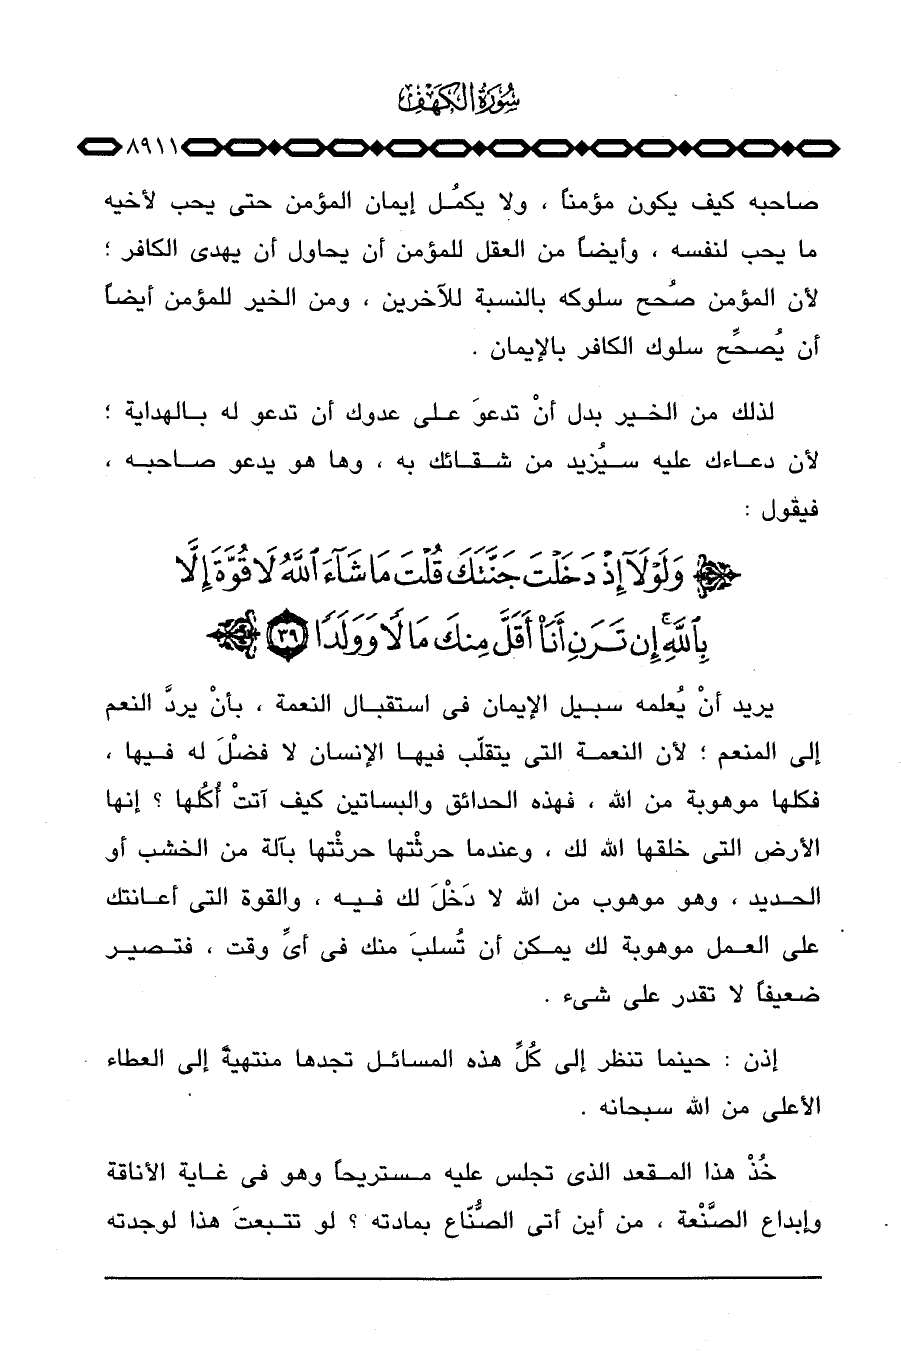 سُورَةُ الكَهْفِ
٨٩١١
صاحبه كيف يكون مؤمناً ، ولا يكمُل إيمان المؤمن حتى يحب لأخيه
ما يحب لنفسه ، وأيضاً من العقل للمؤمن أن يحاول أن يهدى الكافر ؛
لأن المؤمن صُحح سلوكه بالنسبة للآخرين ، ومن الخير للمؤمن أيضاً
أن يُصحِّح سلوك الكافر بالإيمان .
لذلك من الخير بدل أنْ تدعوَ على عدوك أن تدعو له بالهداية ؛
لأن دعاءك عليه سيُزيد من شقائك به ، وها هو يدعو صاحبه ،
فيقول :
﴿ وَلَوْلَآ إِذْ دَخَلْتَ جَنَّتَكَ قُلْتَ مَا شَآءَ ٱللَّهُ لَا قُوَّةَ إِلَّا
بِٱللَّهِ ۚ إِن تَرَنِ أَنَا۠ أَقَلَّ مِنكَ مَالًا وَوَلَدًا ٣٩ ﴾
يريد أنْ يُعلمه سبيل الإيمان فى استقبال النعمة ، بأنْ يردَّ النعم
إلى المنعم ؛ لأن النعمة التى يتقلّب فيها الإنسان لا فضْلَ له فيها ،
فكلها موهوبة من الله ، فهذه الحدائق والبساتين كيف آتتْ أُكُلها ؟ إنها
الأرض التى خلقها الله لك ، وعندما حرثْتها حرثْتها بآلة من الخشب أو
الحديد ، وهو موهوب من الله لا دَخْلَ لك فيه ، والقوة التى أعانتك
على العمل موهوبة لك يمكن أن تُسلبَ منك فى أىِّ وقت ، فتصير
ضعيفاً لا تقدر على شىء .
إذن : حينما تنظر إلى كُلِّ هذه المسائل تجدها منتهيةً إلى العطاء
الأعلى من الله سبحانه .
خُذْ هذا المقعد الذى تجلس عليه مستريحاً وهو فى غاية الأناقة
وإبداع الصَّنْعة ، من أين أتى الصُّنّاع بمادته ؟ لو تتبعتَ هذا لوجدته